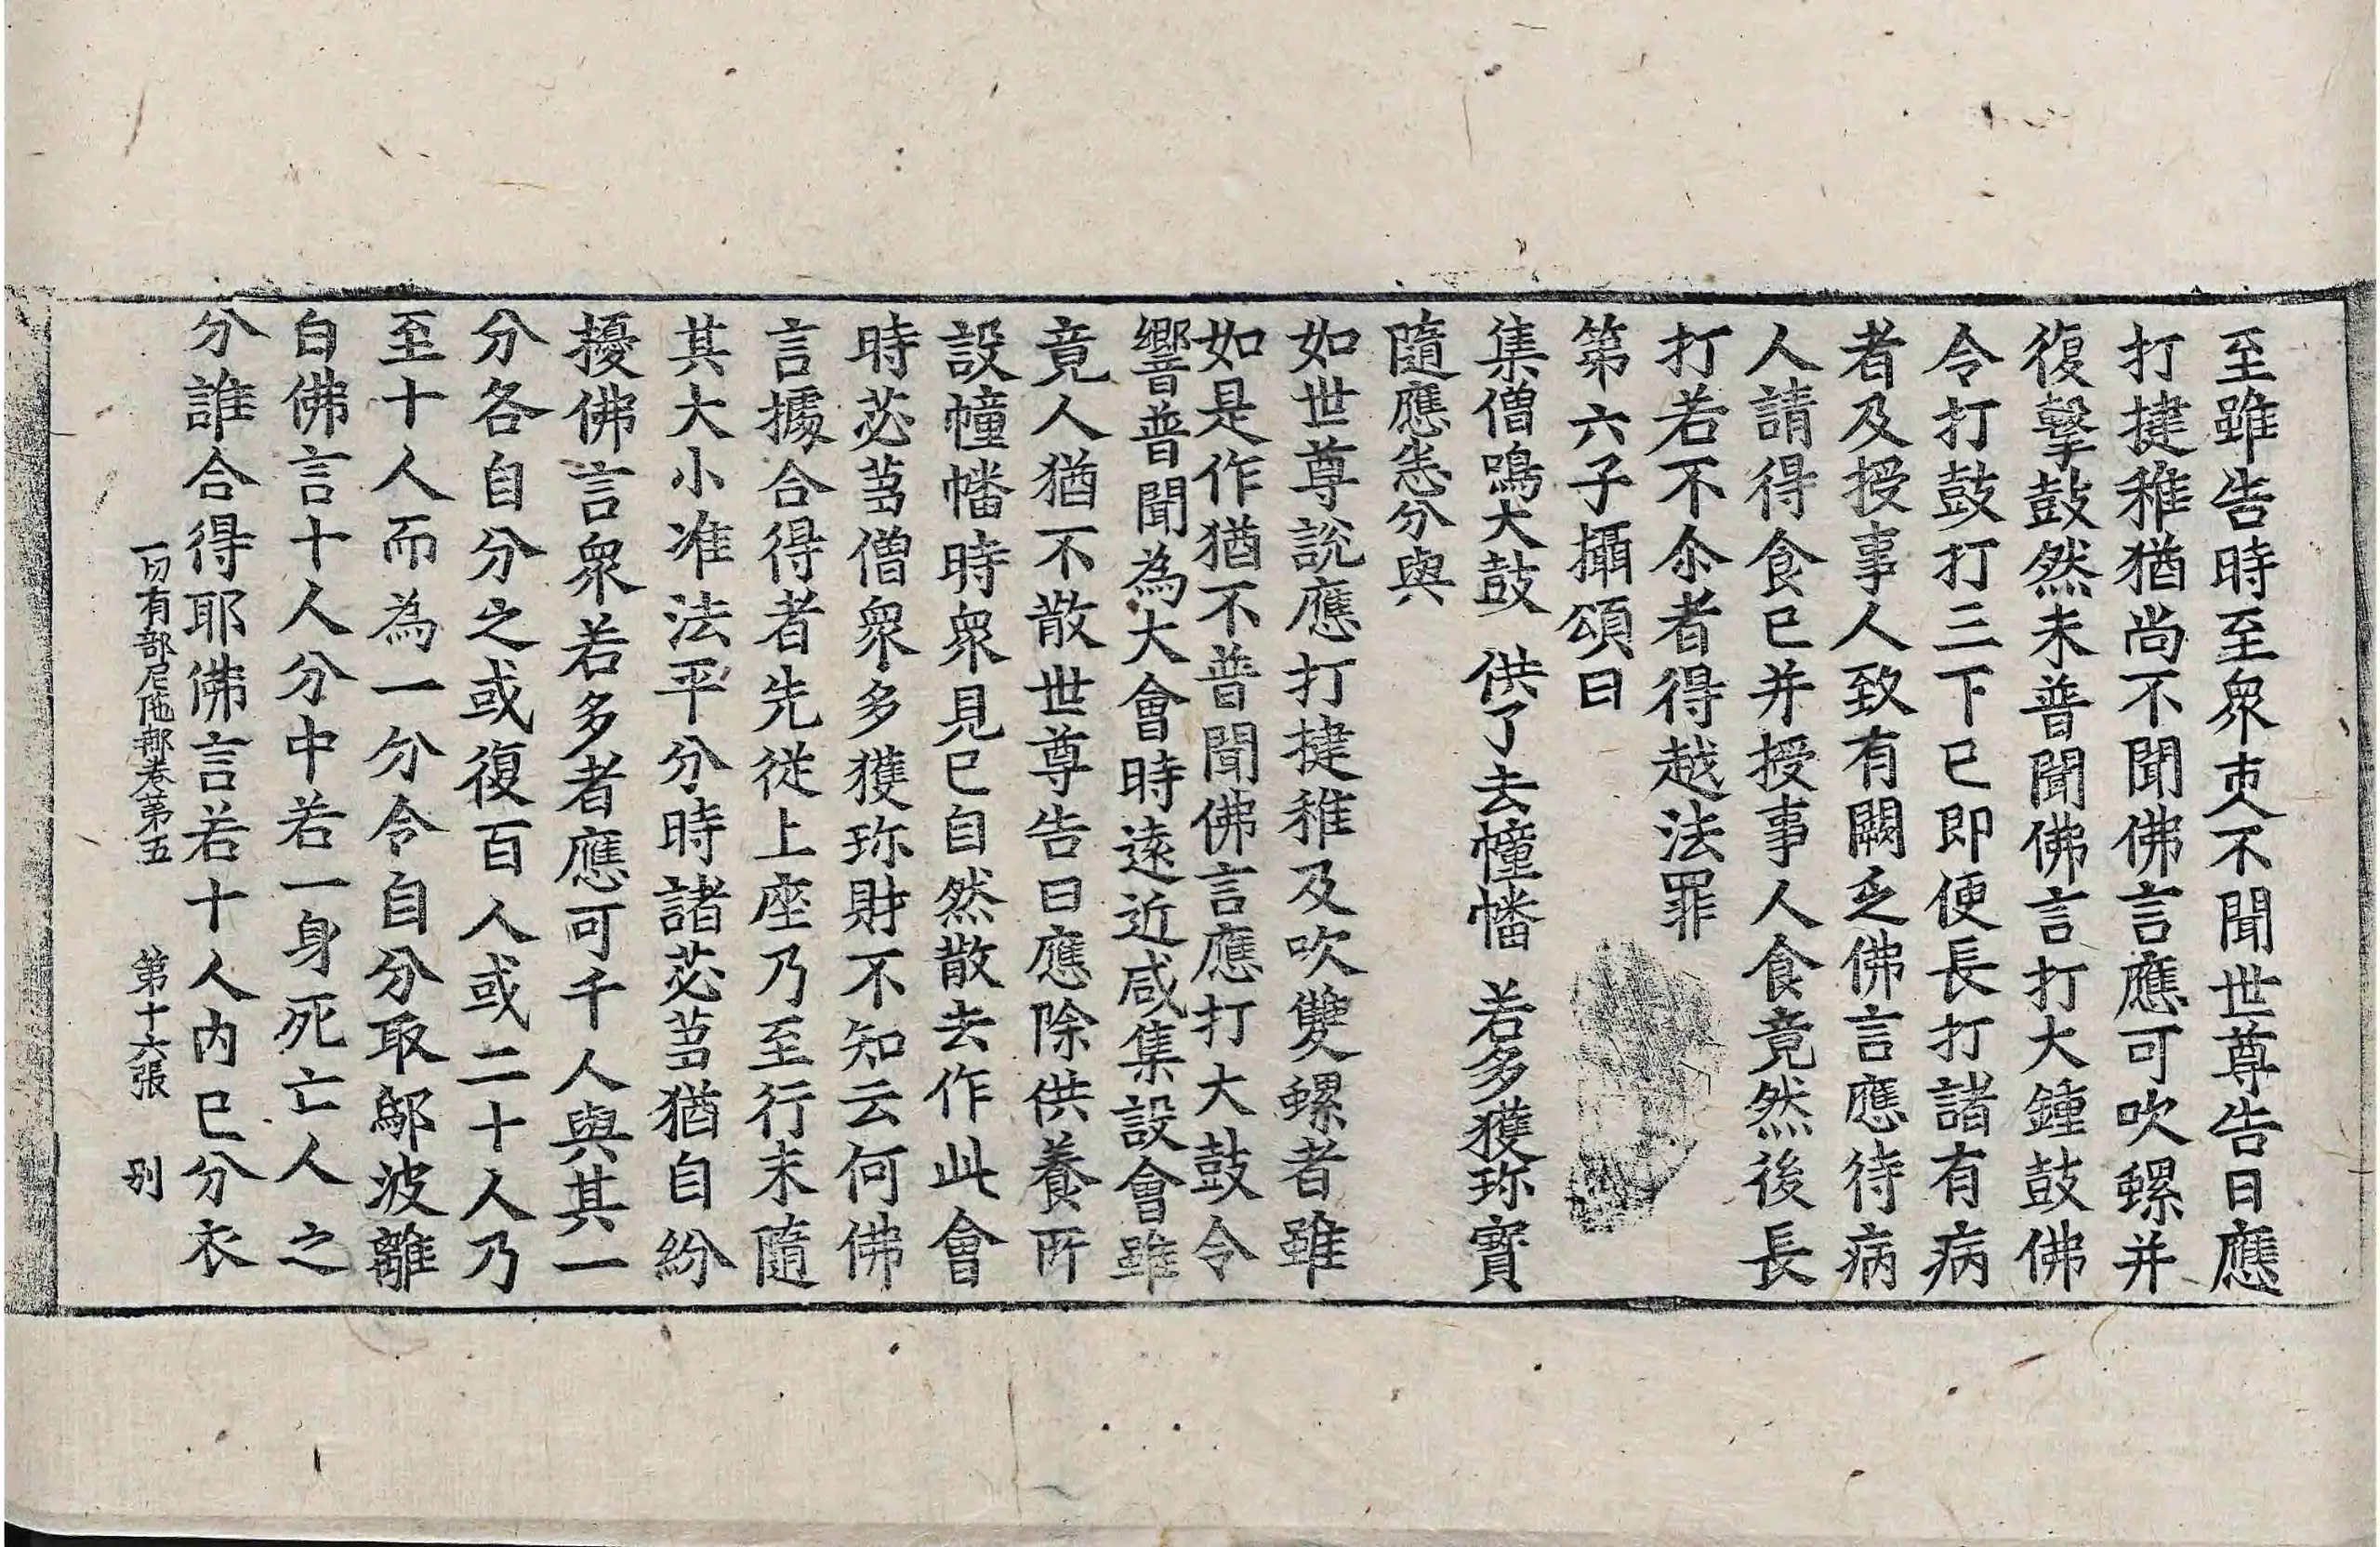 至雖告時至衆亦不聞世尊告曰應
打揵稚猶尚不聞佛言應可吹螺并
復擊鼓然未普聞佛言打大鍾鼓佛
令打鼓打三下已即便長打諸有病
者及授事人致有闕乏佛言應待病
人請得食已并授事人食竟然後長
打若不尒者得越法罪
第六子攝頌曰
集僧鳴大鼓 供了去幢幡 若多獲珎寳
隨應悉分與
如世尊說應打揵稚及吹雙螺者雖
如是作猶不普聞佛言應打大鼓令
響普聞為大會時遠近咸集設會雖
竟人猶不散世尊告曰應除供養所
設幢幡時衆見已自然散去作此會
時苾蒭僧衆多獲珎財不知云何佛
言據合得者先從上座乃至行末隨
其大小准法平分時諸苾蒭猶自紛
擾佛言衆若多者應可千人與其一
分各自分之或復百人或二十人乃
至十人而為一分令自分取鄔波離
白佛言十人分中若一身死亡人之
分誰合得耶佛言若十人内已分衣
一切有部尼陁那卷第五 第十六張 別